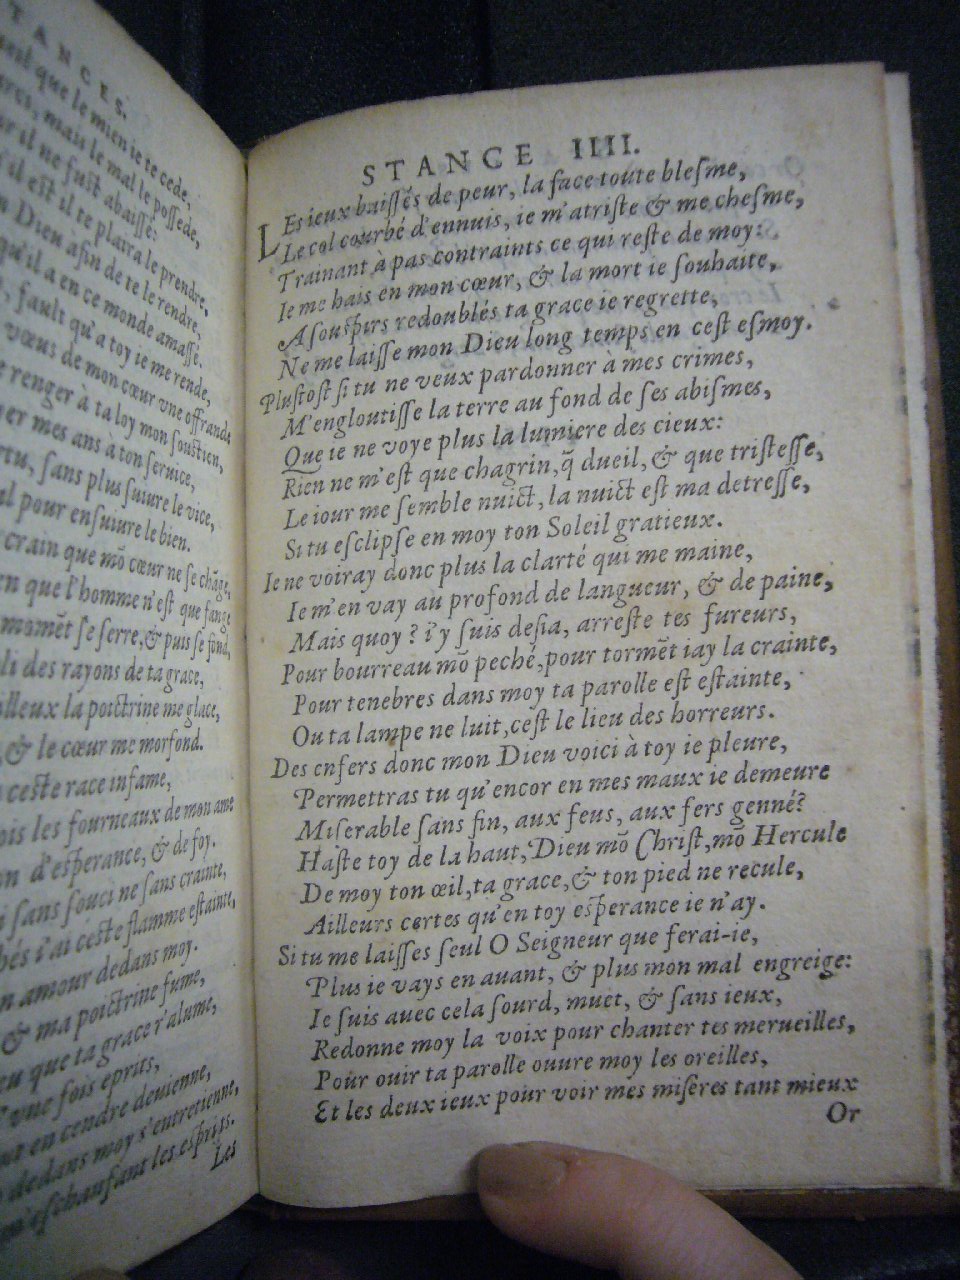 TANCES.
que le mien ie te cede,
mais le mal le possede,
il ne fust abaissé:
s'il est il te plaira le prendre,
Dieu afin de te le rendre,
qu'il a en ce monde amassé.
fault qu'a toy ie me rende,
vœus de mon cœur vne offrande
renger à ta loy mon soustien,
mes ans à ton seruice,
sans plus suiure le vice,
pour ensuiure le bien.
crain que mõ cœur ne se chãge,
que l'homme n'est que fange
momẽt se serre, & puis se fond,
des rayons de ta grace,
la poictrine me glace,
& le cœur me morfond.
ceste race infame,
les fourneaux de mon ame
d'esperance, & de foy.
sans souci ne sans crainte,
i'ai ceste flamme estainte,
amour dedans moy.
& ma poictrine fume,
que ta grace r'alume,
vne fois eprits,
en cendre deuienne,
dedans moy s'entretienne,
eschaufant les esprits.
Les
STANCE IIII.
LEs ieux baissés de peur, la face toute blesme,
Le col courbé d'ennuis, ie m'atriste & me chesme,
Trainant à pas contraints ce qui reste de moy:
Ie me hais en mon cœur, & la mort ie souhaite,
A souspirs redoublés ta grace ie regrette,
Ne me laisse mon Dieu long temps en cest esmoy.
Plustost si tu ne veux pardonner à mes crimes,
M'engloutisse la terre au fond de ses abismes,
Que ie ne voye plus la lumiere des cieux:
Rien ne m'est que chagrin, q̃ dueil, & que tristesse,
Le iour me semble nuict, la nuict est ma detresse,
Si tu esclipse en moy ton Soleil gratieux.
Ie ne voiray donc plus la clarté qui me maine,
Ie m'en vay au profond de langueur, & de paine,
Mais quoy? i'y suis desia, arreste tes fureurs,
Pour bourreau mõ peché, pour tormẽt iay la crainte,
Pour tenebres dans moy ta parolle est estainte,
Ou ta lampe ne luit, cest le lieu des horreurs.
Des enfers donc mon Dieu voici à toy ie pleure,
Permettras tu qu'encor en mes maux ie demeure
Miserable sans fin, aux feus, aux fers genné?
Haste toy de la haut, Dieu mõ Christ, mõ Hercule
De moy ton œil, ta grace, & ton pied ne recule,
Ailleurs certes qu'en toy esperance ie n'ay.
Si tu me laisses seul O Seigneur que ferai-ie,
Plus ie vays en auant, & plus mon mal engreige:
Ie suis auec cela sourd, muet, & sans ieux,
Redonne moy la voix pour chanter tes merueilles,
Pour ouir ta parolle ouure moy les oreilles,
Et les deux ieux pour voir mes miseres tant mieux
Or